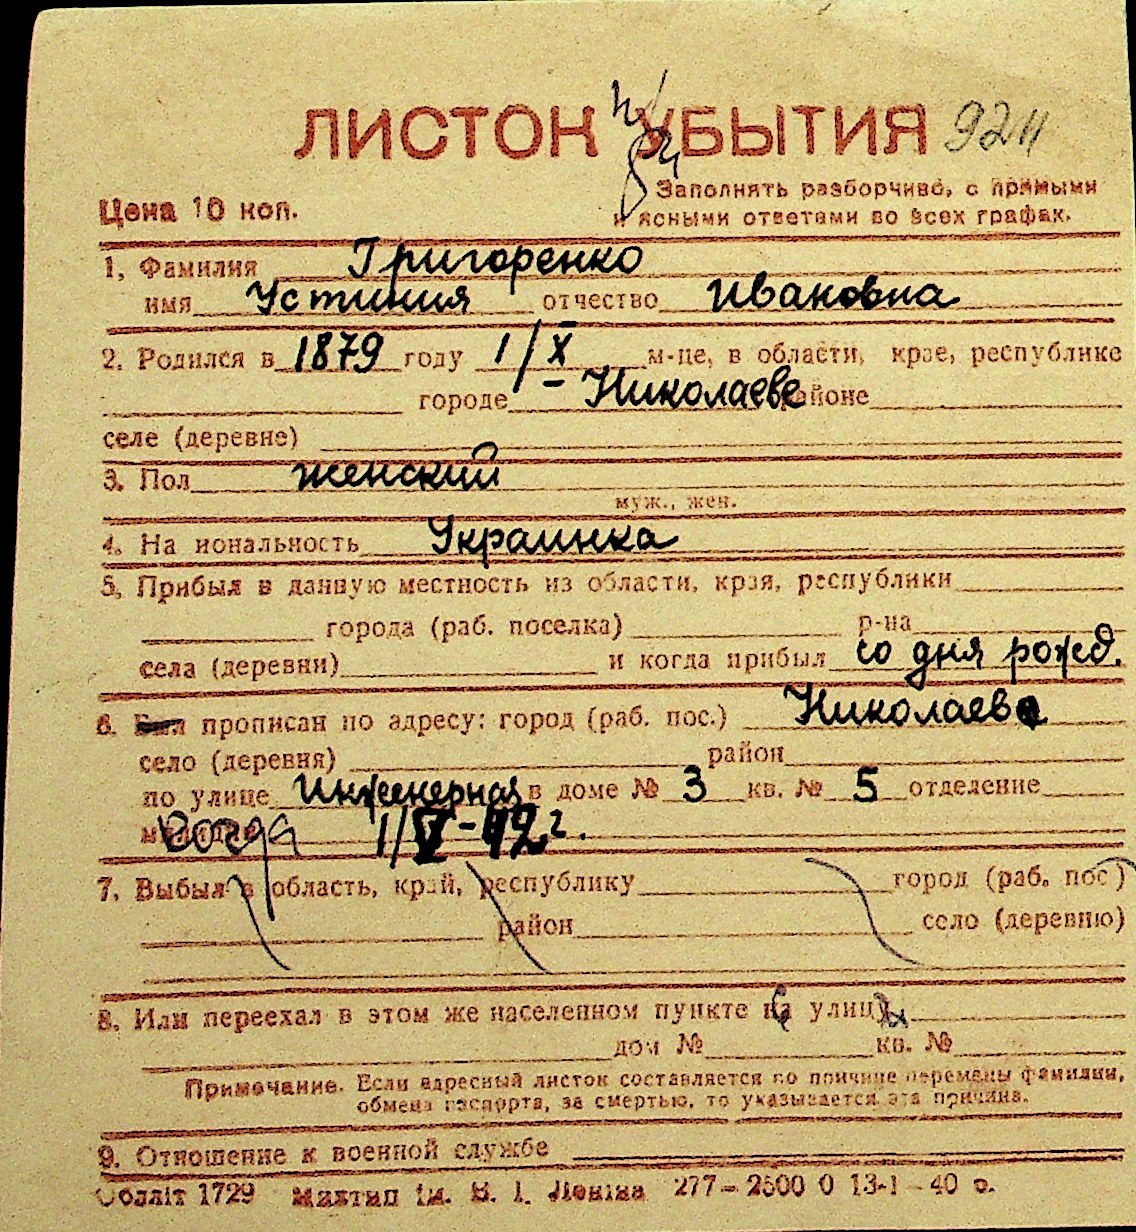 ЛИСТОК УБЫТИЯ 9211
Заполнять разборчиво, с прямыми
Цена 10 коп.
и ясными ответами во всех графах.
1. Фамилия Григоренко
имя Устиния отчество Ивановна
2. Родился в 1879 году 1/X м-це, в области, крае, республике
городе - Николаеве районе
селе (деревне)
3. Пол женский
муж., жен.
4. На иональность Украинка
5. Прибыл в данную местность из области, края, республики
города (раб. поселка) р-на
села (деревни) и когда прибыл со дня рожд.
6. Был прописан по адресу: город (раб. пос.) Николаев
село (деревня) район
по улице Инженерная в доме № 3 кв. № 5 отделение
когда 1/V-42 г.
7. Выбыл в область, край, республику город (раб. пос)
район село (деревню)
8. Или переехал в этом же населенном пункте на улицу
дом № кв. №
Примечание. Если адресный листок составляется по причине перемены фамилии,
обмена паспорта, за смертью, то указывается эта причина.
9. Отношение к военной службе
Обллiт 1729 Миктип iм. В. I. Ленiна 277-2500 0 13-1-40 р.